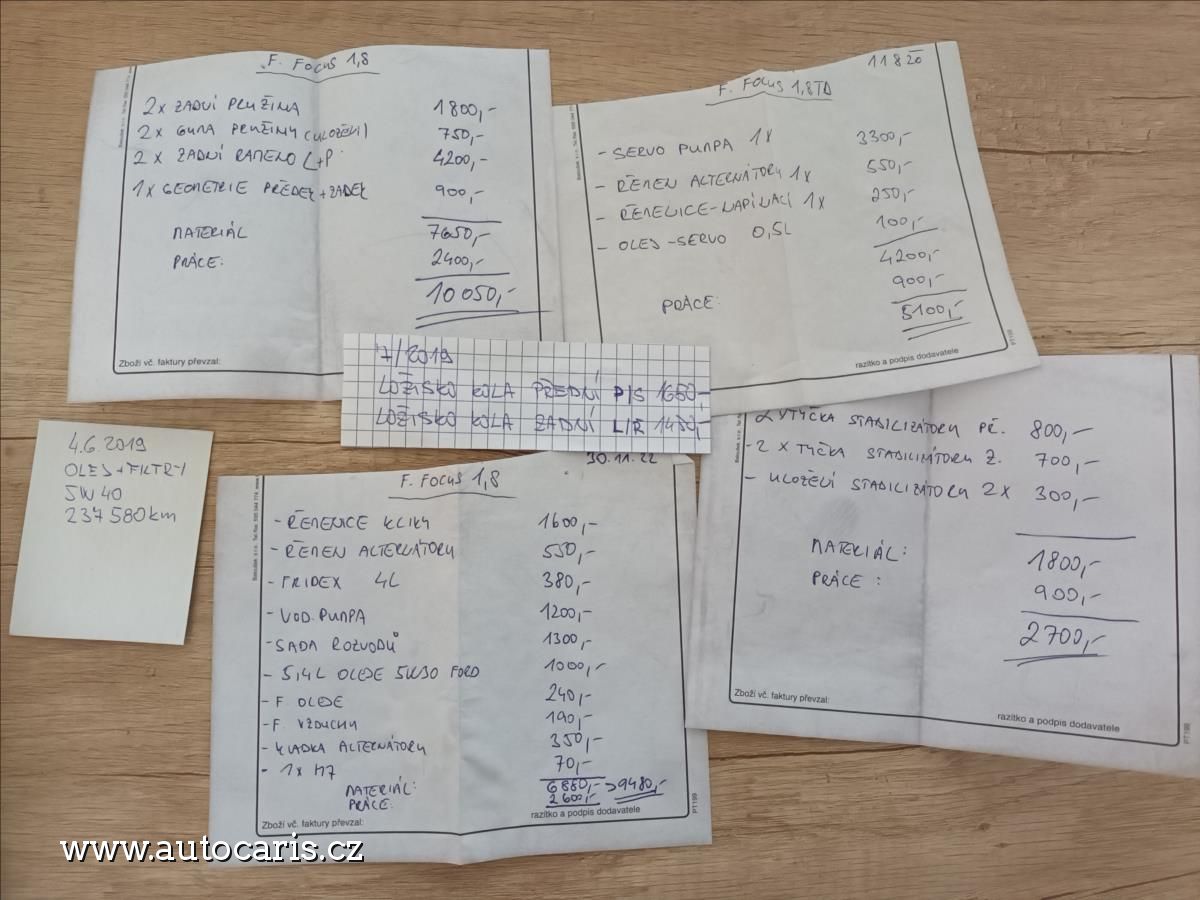 F. FOCUS 1,8
2x ZADNÍ PRUŽINA 1800,-
2x GUMA PRUŽINY (ULOŽENÍ) 750,-
2x ZADNÍ RAMENO L+P 4200,-
1x GEOMETRIE PŘEDEK+ZADEK 900,-
MATERIÁL 7650,-
PRÁCE: 2400,-
10 050,-
Zboží vč. faktury převzal:
11 8 20
F. FOCUS 1,8TD
- SERVO PUMPA 1x 3300,-
- ŘEMEN ALTERNÁTORU 1x 550,-
- ŘEMENICE-NAPÍNACÍ 1x 250,-
- OLEJ-SERVO 0,5L 100,-
4200,-
PRÁCE: 900,-
5100,-
razítko a podpis dodavatele
PT199
7/2019
LOŽISKO KOLA PŘEDNÍ P/S 1650,-
LOŽISKO KOLA ZADNÍ L/R
4.6.2019
OLEJ+FILTRY
5W40
237 580km
30.11.22
F. FOCUS 1,8
- ŘEMENICE KLIKY 1600,-
- ŘEMEN ALTERNÁTORU 550,-
- FRIDEX 4L 380,-
- VOD. PUMPA 1200,-
- SADA ROZVODŮ 1300,-
- 5,4L OLEJE 5W30 FORD 1000,-
- F. OLEJE 240,-
- F. VZDUCHU 190,-
- KLADKA ALTERNÁTORU 350,-
- 1x H7 70,-
MATERIÁL: 6880,- >9480,-
PRÁCE: 2600,-
Zboží vč. faktury převzal:
razítko a podpis dodavatele
PT199
TYČKA STABILIZÁTORU PŘ. 800,-
- 2 x TYČKA STABILIZÁTORU Z. 700,-
- ULOŽENÍ STABILIZÁTORU 2x 300,-
MATERIÁL: 1800,-
PRÁCE: 900,-
2700,-
Zboží vč. faktury převzal:
razítko a podpis dodavatele
PT199
www.autocaris.cz